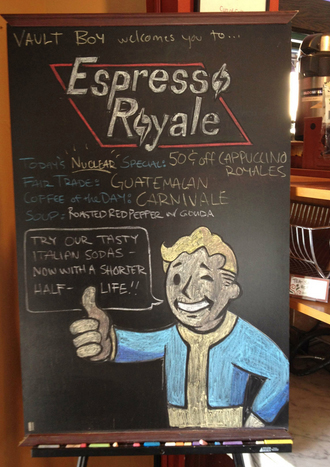 VAULT BOY welcomes you to...
Espresso
Royale
TODAY'S "NUCLEAR" SPECIAL: 50¢ off CAPPUCCINO
ROYALES
FAIR TRADE: GUATEMALAN
COFFEE of the DAY: CARNIVALE
SOUP: ROASTED RED PEPPER w/ GOUDA
TRY OUR TASTY
ITALIAN SODAS -
NOW WITH A SHORTER
HALF- LIFE!!